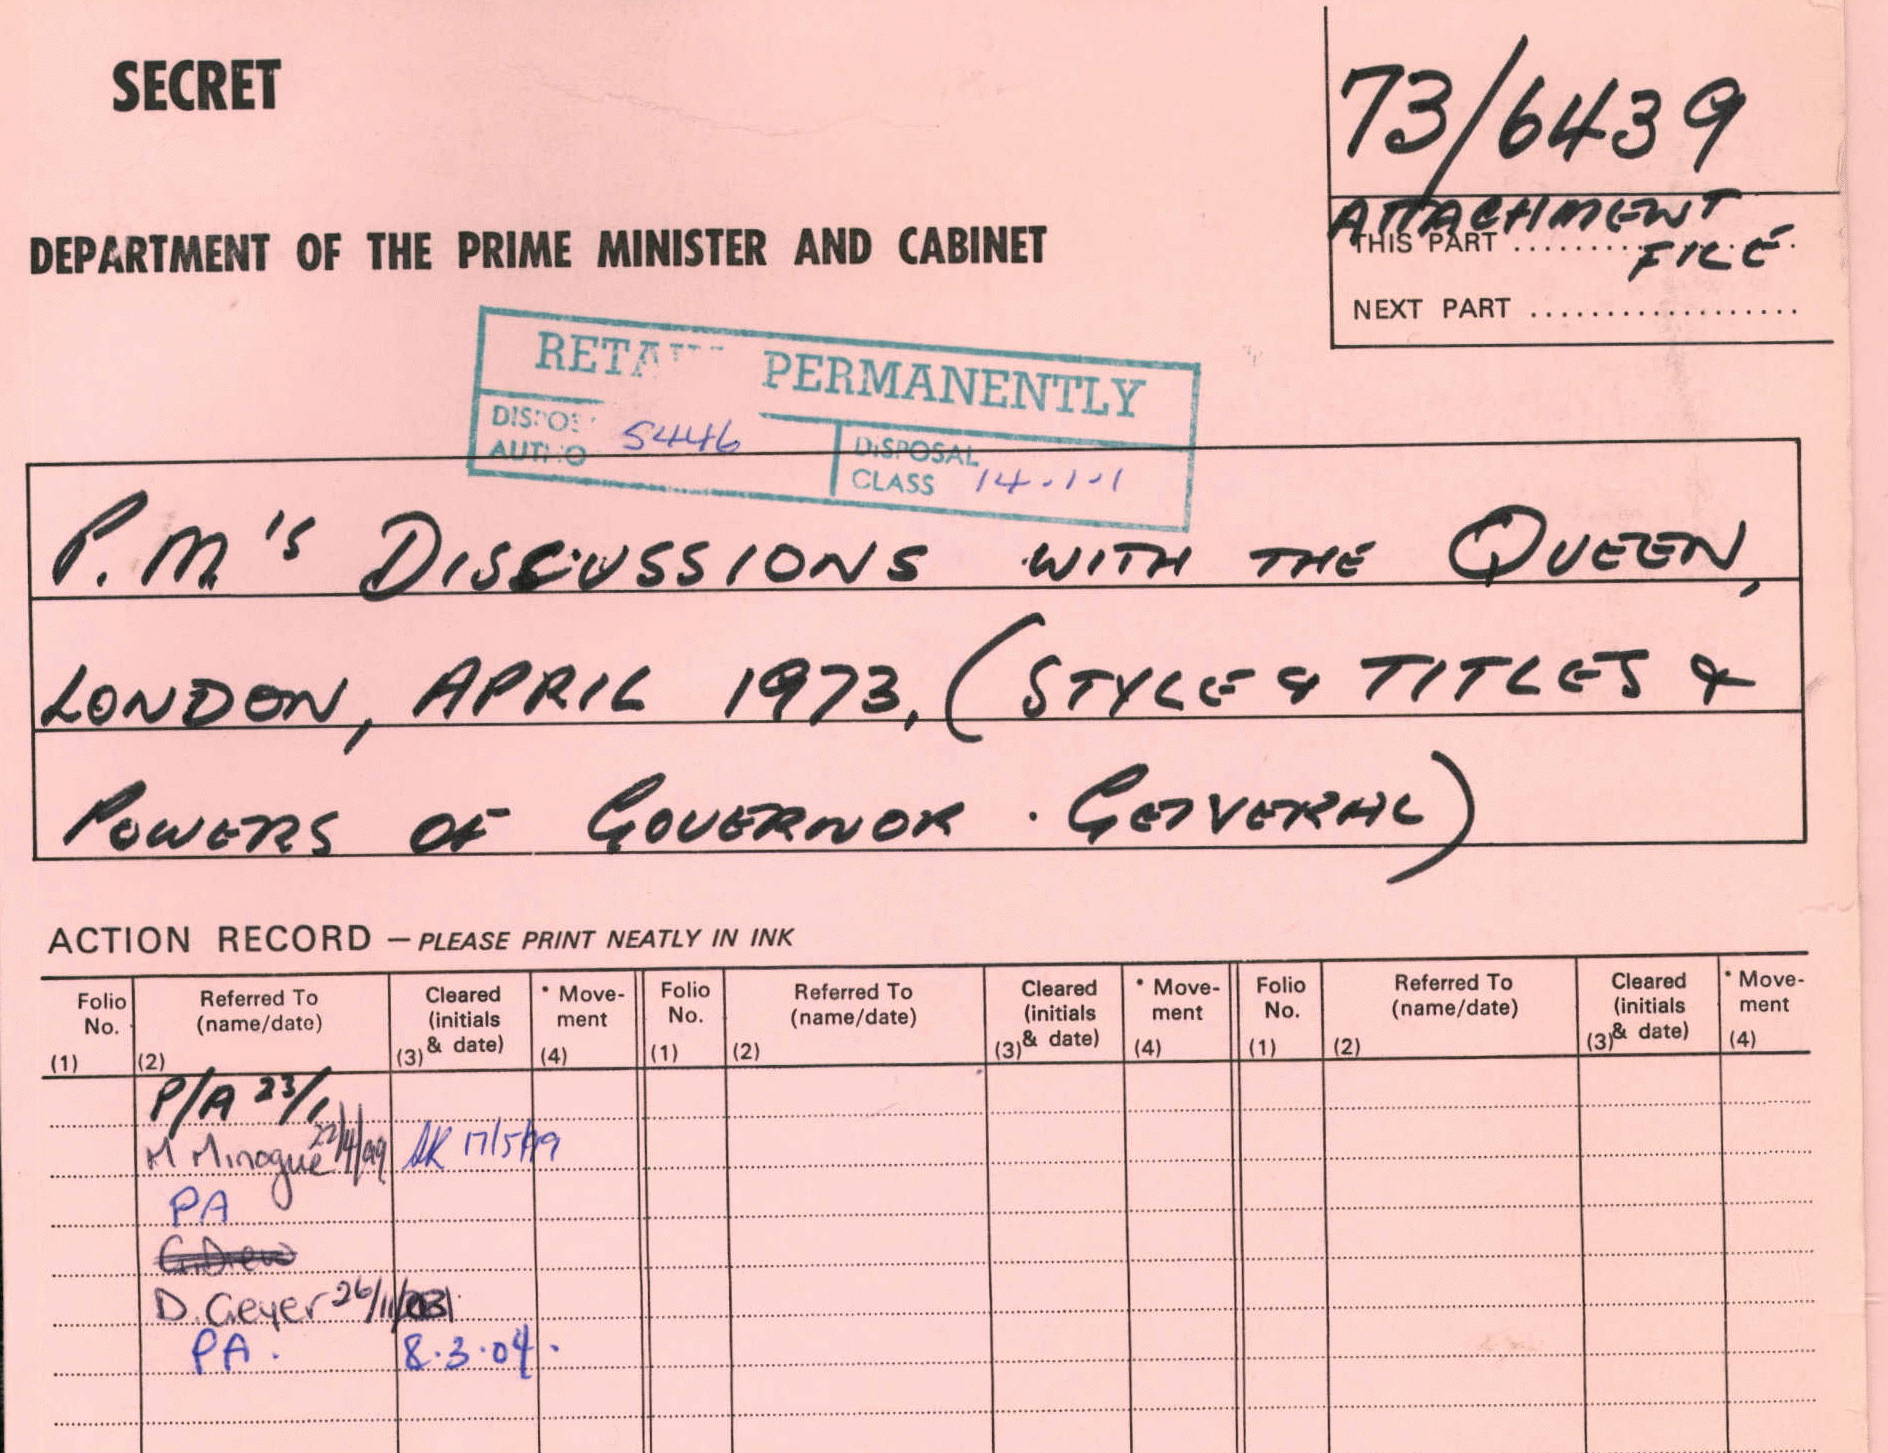 SECRET
73/6439
ATTACHMENT
FILE
THIS PART
NEXT PART ..................
DEPARTMENT OF THE PRIME MINISTER AND CABINET
PERMANENTLY
5446
DISPOSAL
CLASS 14.1.1
P.M.'s DISCUSSIONS WITH THE QUEEN,
LONDON, APRIL 1973, (STYLE & TITLES &
POWERS OF GOVERNOR-GENERAL)
ACTION RECORD — PLEASE PRINT NEATLY IN INK
Folio No. (1) Referred To (name/date) (2) Cleared (initials & date) (3) * Move-ment (4) Folio No. (1) Referred To (name/date) (2) Cleared (initials & date) (3) * Move-ment (4) Folio No. (1) Referred To (name/date) (2) Cleared (initials & date) (3) * Move-ment (4)
P/A 23/1
M Minogue 22/4/99 17/5/99
PA
G. Drew
D. Geyer 26/11/03
PA. 8.3.04.